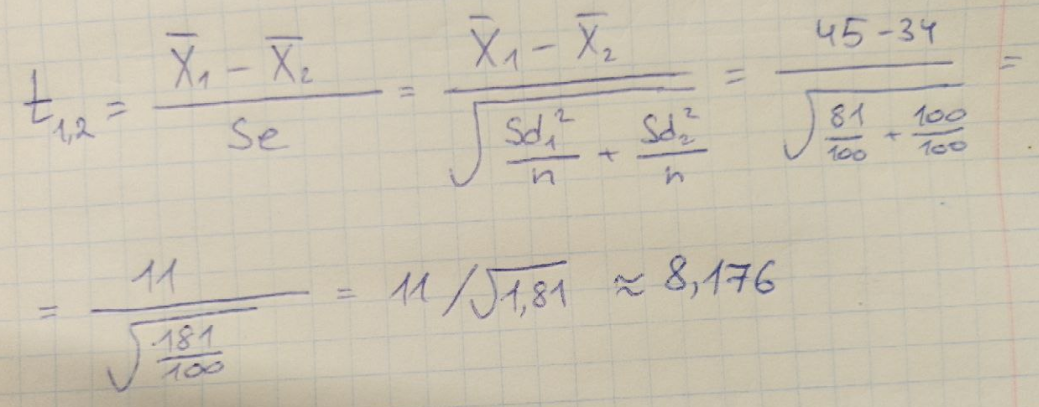 t₁,₂ = (X̄₁ − X̄₂) / Se = (X̄₁ − X̄₂) / √(Sd₁²/n + Sd₂²/n) = (45 − 34) / √(81/100 + 100/100) =
= 11 / √(181/100) = 11/√1,81 ≈ 8,176